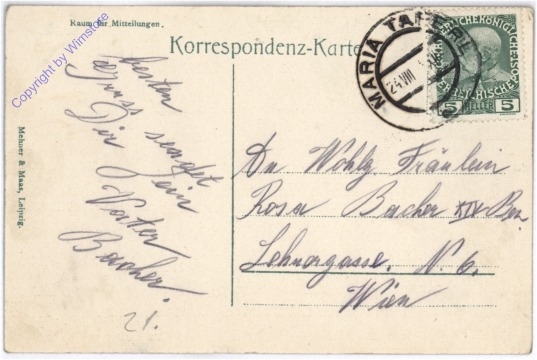 Raum für Mitteilungen.
Korrespondenz-Karte
MARIA TAFERL
24 VIII
5 HELLER 5
besten
Gruss sendet
Dir Dein
Vater
Bacher.
21.
An Wohlg Fräulein
Rosa Bacher XIX Bez
Lehnergasse. N. 6.
Wien
Mehner & Maas, Leipzig.
Copyright by Wimstore